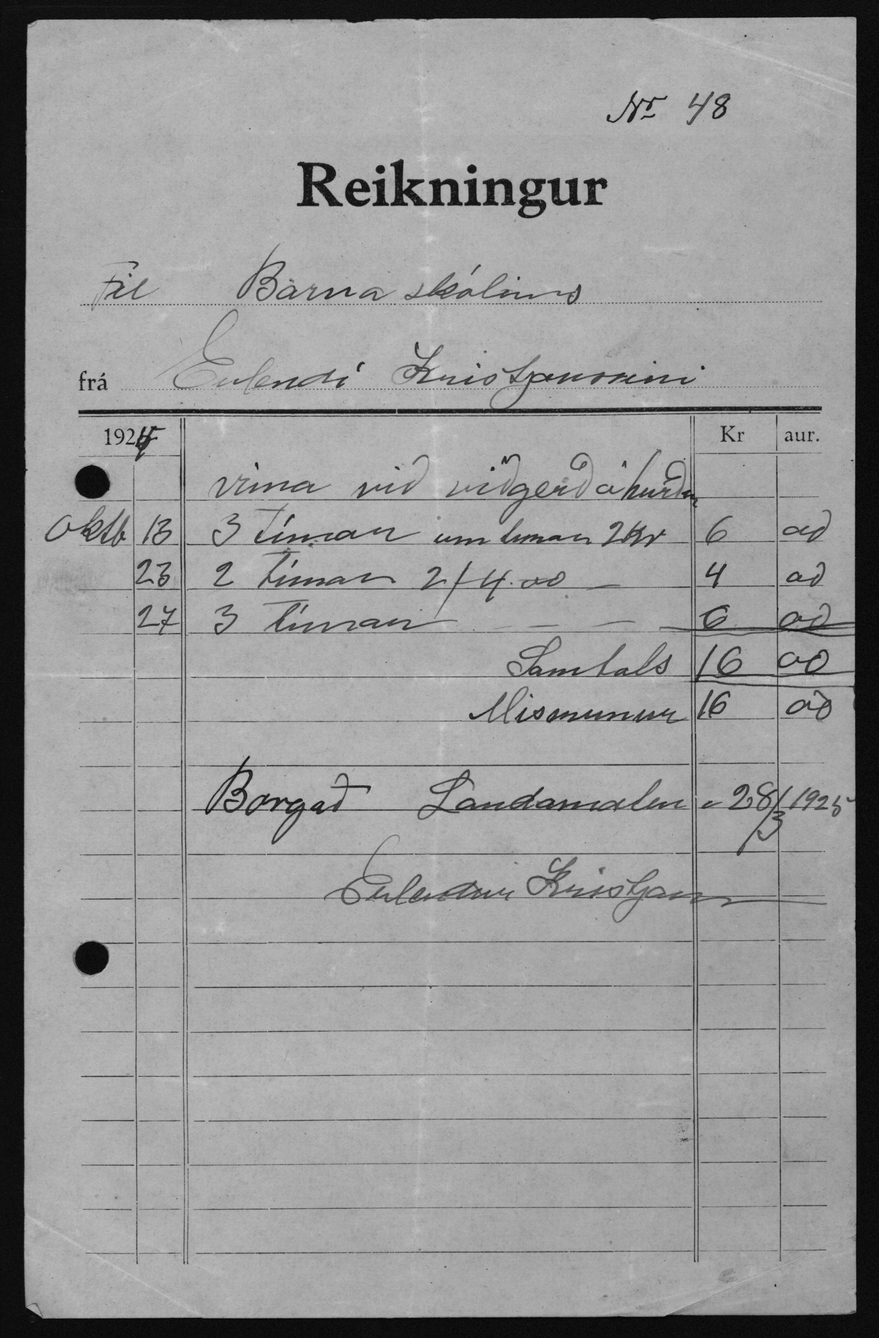 Nr 48
Reikningur
Til Barnaskólans
frá Erlendi Kristjánssini
1924 Kr aur.
vinna við viðgerð á hurðum
Oktb 13 3 tímar um tíman 2 Kr 6 00
23 2 tímar 2/4.00 — 4 00
27 3 tímar — — — 6 00
Samtals 16 00
Mismunur 16 00
Borgað 28/3 1925
Erlendur Kristjáns